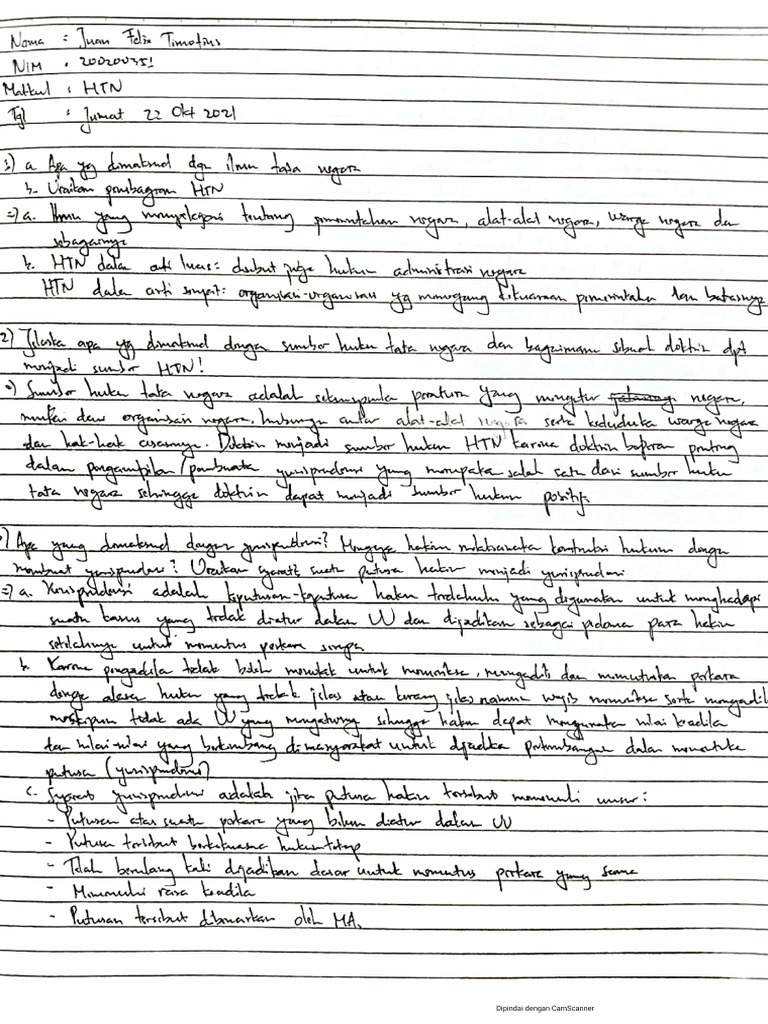 Nama : Juan Felix Timotius
NIM : 200200351
Matkul : HTN
Tgl : Jumat 22 Okt 2021
1) a. Apa yg dimaksud dgn ilmu tata negara
b. Uraikan pembagian HTN
=> a. Ilmu yang mempelajari tentang pemerintahan negara, alat-alat negara, warga negara dan
sebagainya
b. HTN dalam arti luas : disebut juga hukum administrasi negara
HTN dalam arti sempit : organisasi-organisasi yg memegang kekuasaan pemerintahan dan batasnya
2) Jelaskan apa yg dimaksud dengan sumber hukum tata negara dan bagaimana sebuah doktrin dpt
menjadi sumber HTN!
=> Sumber hukum tata negara adalah sekumpulan peraturan yang mengatur negara,
mulai dari organisasi negara, hubungan antar alat-alat negara serta kedudukan warga negara
dan hak-hak asasinya. Doktrin menjadi sumber hukum HTN karena doktrin berperan penting
dalam pengambilan/pembuatan yurisprudensi yang merupakan salah satu dari sumber hukum
tata negara sehingga doktrin dapat menjadi sumber hukum positif.
) Apa yang dimaksud dengan yurisprudensi? Mengapa hakim melaksanakan konstruksi hukum dengan
membuat yurisprudensi? Uraikan syarat suatu putusan hakim menjadi yurisprudensi
=> a. Yurisprudensi adalah keputusan-keputusan hakim terdahulu yang digunakan untuk menghadapi
suatu kasus yang tidak diatur dalam UU dan dijadikan sebagai pedoman para hakim
setelahnya untuk memutus perkara serupa
b. Karena pengadilan tidak boleh menolak untuk memeriksa, mengadili dan memutuskan perkara
dengan alasan hukum yang tidak jelas atau kurang jelas namun wajib memeriksa serta mengadili
meskipun tidak ada UU yang mengaturnya sehingga hakim dapat menggunakan nilai keadilan
dan nilai-nilai yang berkembang di masyarakat untuk dijadikan pertimbangan dalam menentukan
putusan (yurisprudensi)
c. Syarat yurisprudensi adalah jika putusan hakim tersebut memenuhi unsur :
- Putusan atas suatu perkara yang belum diatur dalam UU
- Putusan tersebut berkekuatan hukum tetap
- Telah berulang kali dijadikan dasar untuk memutus perkara yang sama
- Memenuhi rasa keadilan
- Putusan tersebut dibenarkan oleh MA.
Dipindai dengan CamScanner